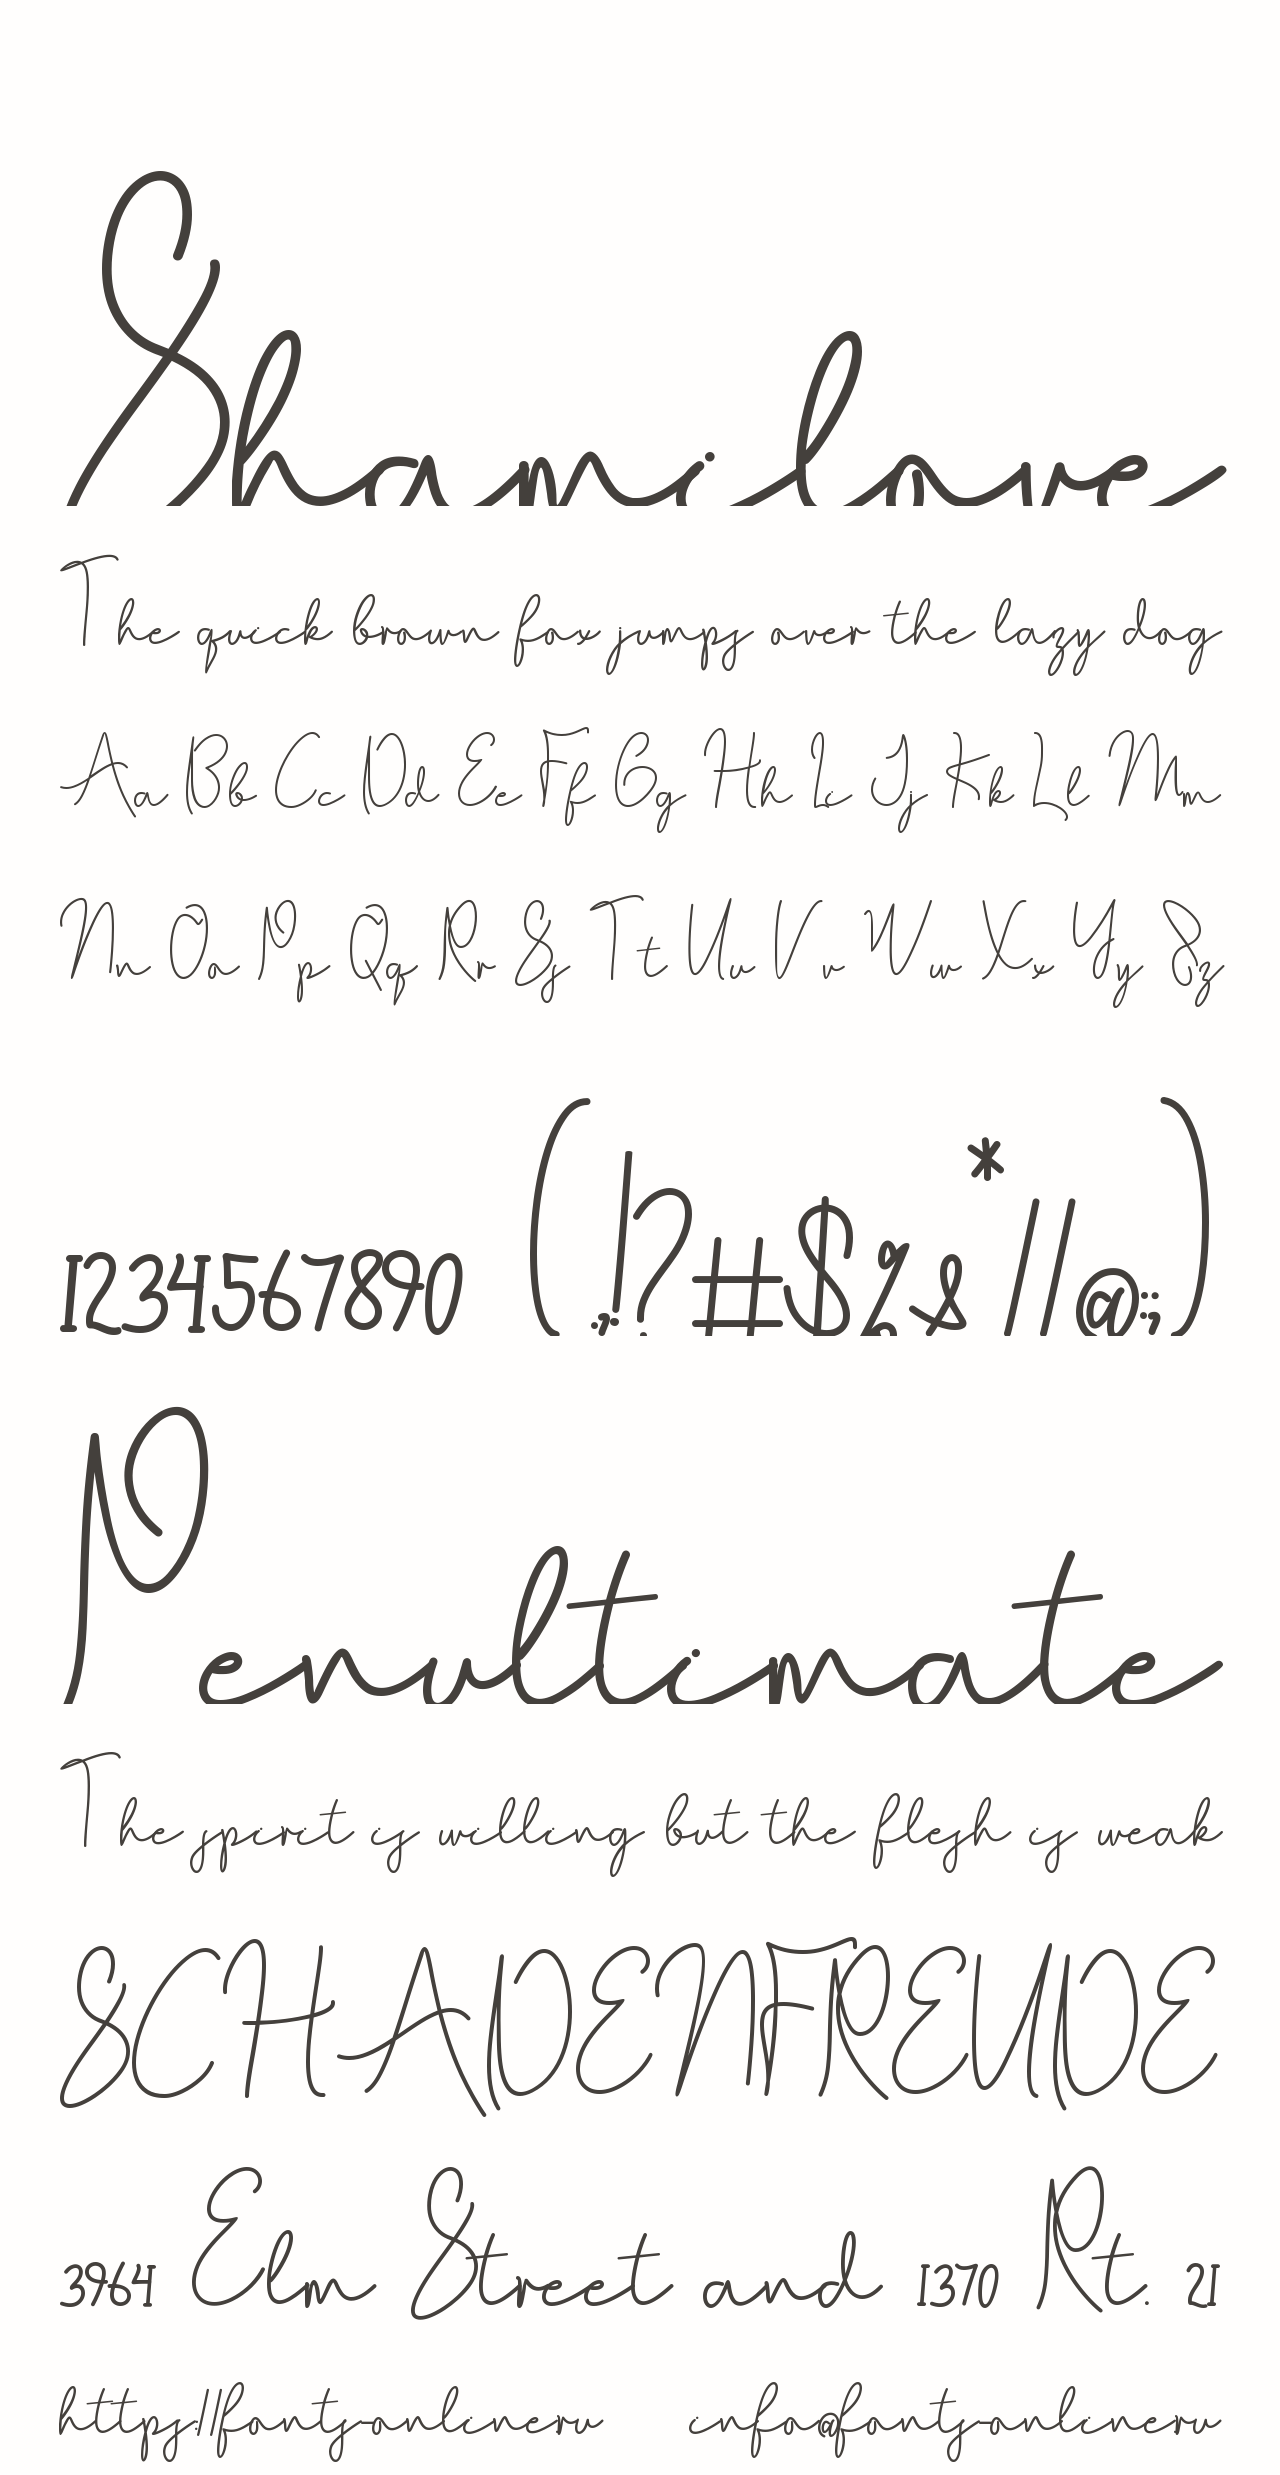 Shamilove
The quick brown fox jumps over the lazy dog
Aa Bb Cc Dd Ee Ff Gg Hh Ii Jj Kk Ll Mm
Nn Oo Pp Qq Rr Ss Tt Uu Vv Ww Xx Yy Zz
1234567890 (.,!?#$%&*//@:;)
Penultimate
The spirit is willing but the flesh is weak
SCHADENFREUDE
3964 Elm Street and 1370 Rt. 21
https://fonts-online.ru info@fonts-online.ru